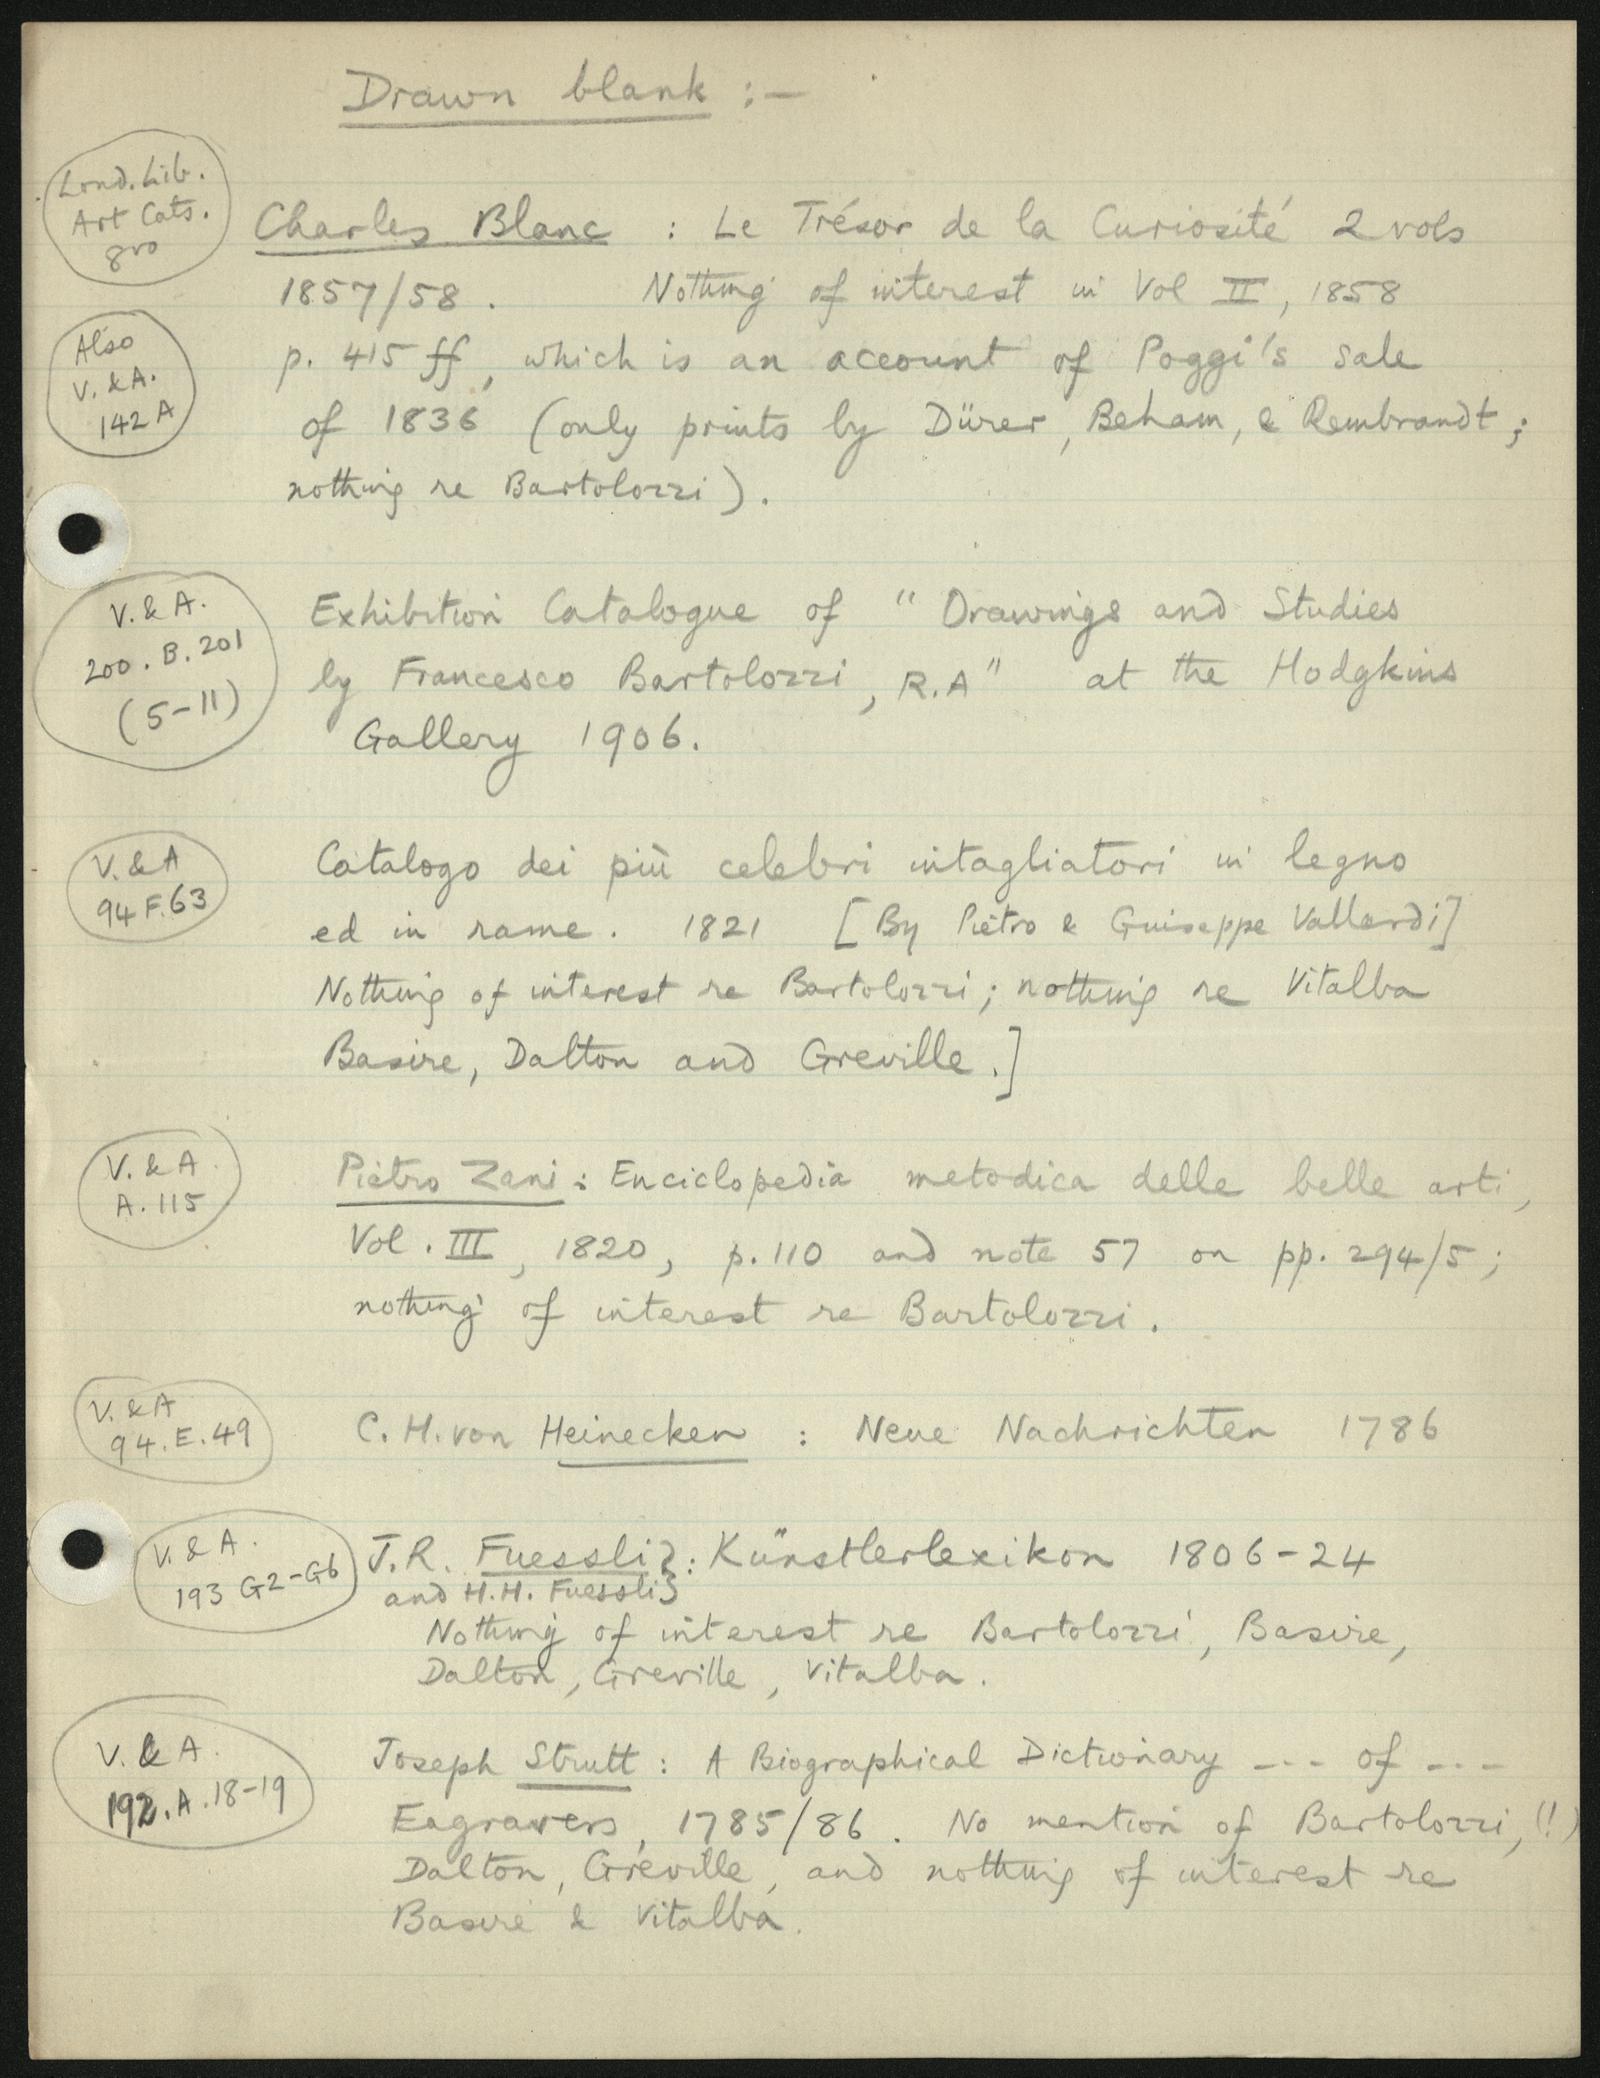 Drawn blank :—
Lond. Lib.
Art Cats.
8vo
Charles Blanc : Le Trésor de la Curiosité 2 vols
1857/58 . Nothing of interest in Vol II, 1858
Also
V. & A.
142 A
p. 415 ff, which is an account of Poggi's sale
of 1836 (only prints by Dürer, Beham, & Rembrandt ;
nothing re Bartolozzi).
V. & A.
200. B. 201
(5-11)
Exhibition Catalogue of "Drawings and Studies
by Francesco Bartolozzi, R.A" at the Hodgkins
Gallery 1906.
V. & A
94 F. 63
Catalogo dei più celebri intagliatori in legno
ed in rame . 1821 [By Pietro & Guiseppe Vallardi]
Nothing of interest re Bartolozzi ; nothing re Vitalba
Basire, Dalton and Greville.]
V. & A.
A. 115
Pietro Zani : Enciclopedia metodica delle belle arti,
Vol. III, 1820, p. 110 and note 57 on pp. 294/5 ;
nothing of interest re Bartolozzi.
V. & A
94. E. 49
C. H. von Heinecken : Neue Nachrichten 1786
V. & A.
193 G2-G6
J. R. Fuessli } : Künstlerlexikon 1806-24
and H. H. Fuessli }
Nothing of interest re Bartolozzi, Basire,
Dalton, Greville, Vitalba.
V. & A.
192. A. 18-19
Joseph Strutt : A Biographical Dictionary --- of ---
Engravers, 1785/86 . No mention of Bartolozzi, (!)
Dalton, Greville, and nothing of interest re
Basire & Vitalba.